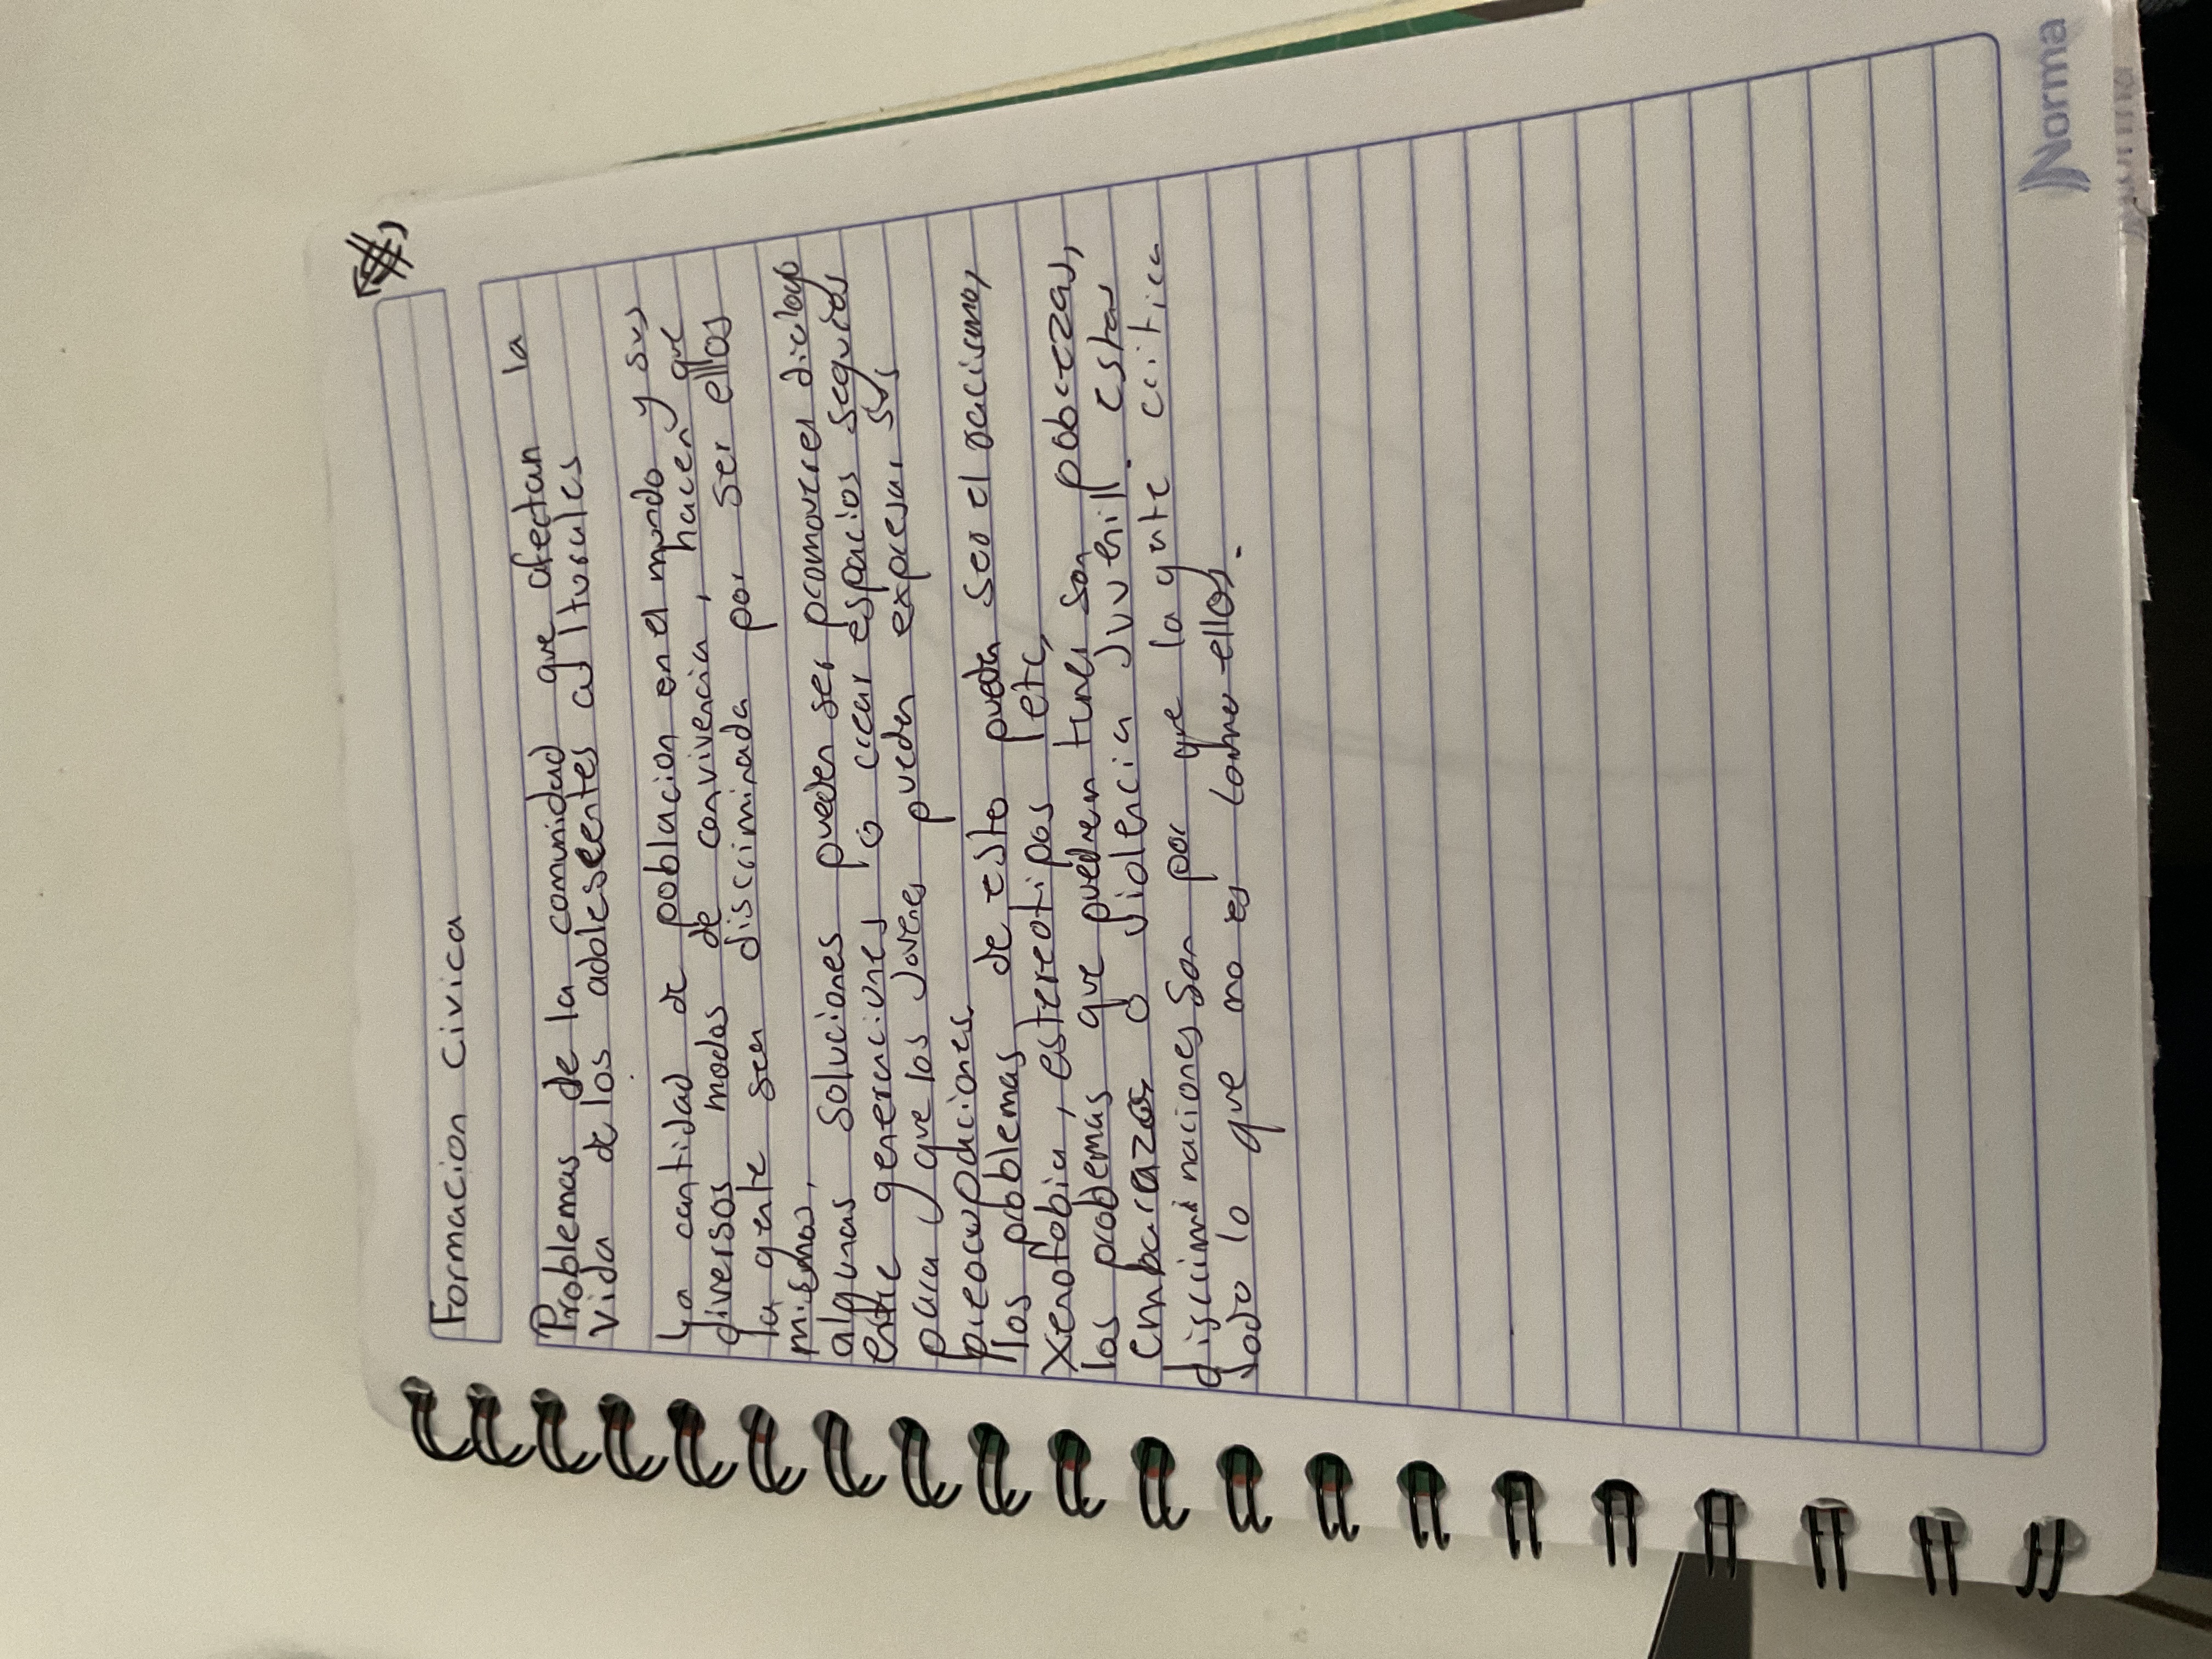 Formacion Civica
Problemas de la comunidad que afectan la
Vida de los adolesentes culturales
La cantidad de poblacion en el mundo y sus
diversos modos de convivencia, hacen que
la gente sea discriminada por ser ellos
mismos,
algunas soluciones pueden ser promover el dialogo
entre generaciones o crear espacios seguros
para que los jovenes puedan expresar sus
preocupaciones.
los problemas de esto pueden ser el racismo,
xenofobia, estereotipos, etc,
los problemas que pueden tener son pobrezas,
embarazos o violencia juvenill. estas
discriminaciones son por que la gente critica
todo lo que no es como ellos.
Norma